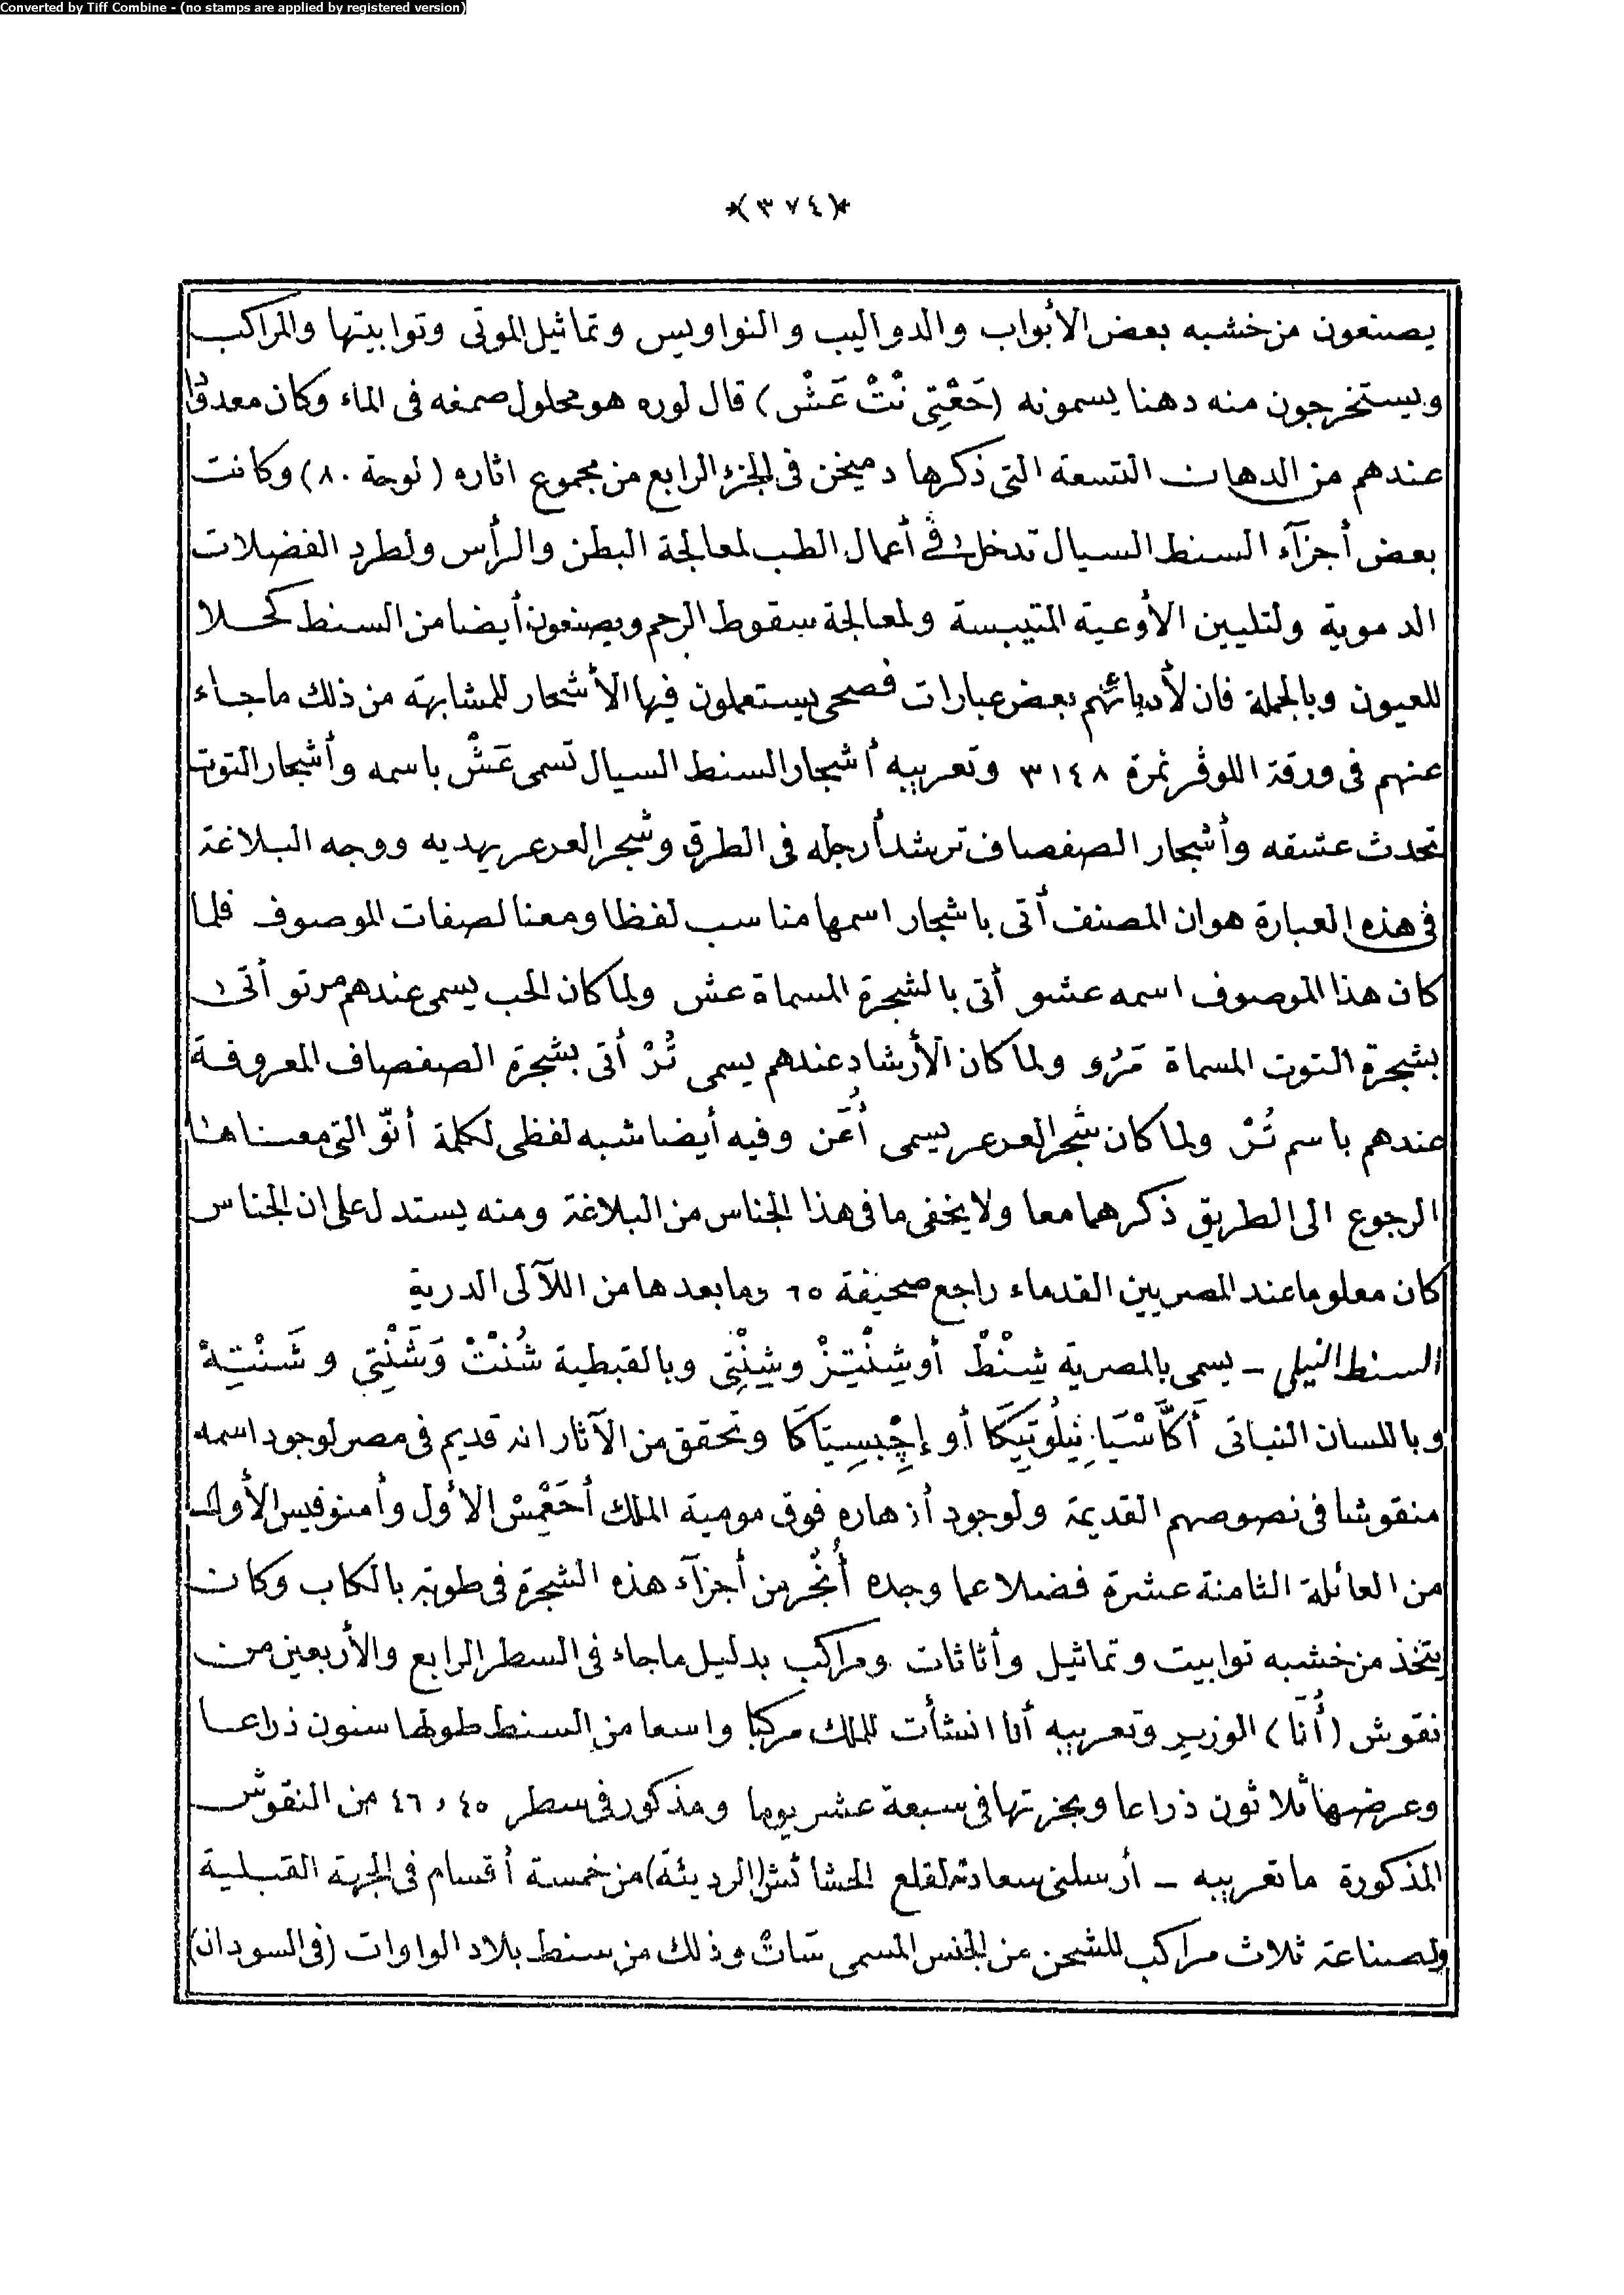 Converted by Tiff Combine - (no stamps are applied by registered version)
*(٣٧٤)*
يصنعون من خشبه بعض الأبواب والدواليب والنواويس وتماثيل الموتى وتوابيتها والمراكب
ويستخرجون منه دهنا يسمونه (حَعْتِى نْتْ عَشْ) قال لوره هو محلول صمغه فى الماء وكان معدودا
عندهم من الدهانات التسعة التى ذكرها دميخن فى الجزء الرابع من مجموع اثاره (لوحة ٨٠) وكانت
بعض أجزآء السنط السيال تدخل فى أعمال الطب لمعالجة البطن والرأس ولطرد الفضلات
الدموية ولتليين الأوعية المتيبسة ولمعالجة سقوط الرحم ويصنعون أيضا من السنط كحلا
للعيون وبالجملة فان لأدبائهم بعض عبارات فصحى يستعملون فيها الأشجار للمشابهة من ذلك ما جاء
عنهم فى ورقة اللوڤر نمرة ٣١٤٨ وتعريبه أشجار السنط السيال تسمى عَشْ باسمه وأشجار التوت
تحدث عشقه وأشجار الصفصاف ترشد أرجله فى الطرق وشجر العرعر يهديه ووجه البلاغة
فى هذه العبارة هو ان المصنف أتى باشجار اسمها مناسب لفظا ومعنا لصفات الموصوف فلما
كان هذا الموصوف اسمه عشو أتى بالشجرة المسماة عش ولما كان الحب يسمى عندهم مرتو أتى
بشجرة التوت المسماة مَرُو ولما كان الأرشاد عندهم يسمى تُرْ أتى بشجرة الصفصاف المعروفة
عندهم باسم تُرْ ولما كان شجر العرعر يسمى أُعَن وفيه أيضا شبه لفظى لكلمة أنّو التى معناها
الرجوع الى الطريق ذكرهما معا ولا يخفى ما فى هذا الجناس من البلاغة ومنه يستدل على ان الجناس
كان معلوما عند المصريين القدماء راجع صحيفة ٦٥ وما بعدها من اللآلى الدرية
السنط النيلى - يسمى بالمصرية شِنْطْ أو شِنْتِزْ وشِنْتِى وبالقبطية شُنْتْ وَشَنْتِى و شَنْتِهْ
وباللسان النباتى أَكَّاسْيَا نِيلُوتِيكَا أو إجِبْسِيَتَاكَا وتحقق من الآثار انه قديم فى مصر لوجود اسمه
منقوشا فى نصوصهم القديمة ولوجود أزهاره فوق مومية الملك أحَعْمِسْ الأول وأمنوفيس الأول
من العائلة الثامنة عشرة فضلا عما وجده أُنْجَر من أجزآء هذه الشجرة فى طوبة بالكاب وكان
يتخذ من خشبه توابيت وتماثيل وأثاثات ومراكب بدليل ما جاء فى السطر الرابع والأربعين من
نقوش (أُنَا) الوزير وتعريبه أنا انشأت للملك مركبا واسعا من السنط طولها ستون ذراعا
وعرضها ثلاثون ذراعا ونجزتها فى سبعة عشر يوما ومذكور فى سطر ٤٥ و ٤٦ من النقوش
المذكورة ما تعريبه - أرسلنى سعادته لقلع الحشائش (الرديئة) من خمسة أقسام فى الجهة القبلية
ولصناعة ثلاث مراكب للشحن من الجنس المسمى سَاتْ وذلك من سنط بلاد الواوات (فى السودان)